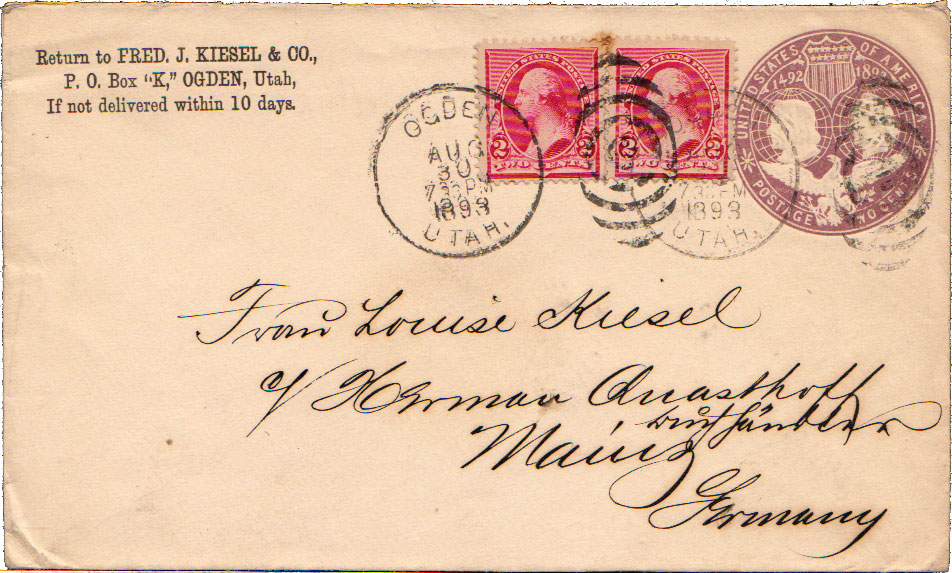 Return to FRED. J. KIESEL & CO.,
P. O. Box "K," OGDEN, Utah,
If not delivered within 10 days.
OGDEN
AUG
30
730PM
1893
UTAH.
UNITED STATES POSTAGE
2 2
TWO CENTS
UNITED STATES POSTAGE
2 2
TWO
1893
UTAH.
UNITED STATES OF AMERICA
1492 189
POSTAGE TWO CENTS
Frau Louise Kiesel
c/ Herman Quasthoff
Mainz
Germany